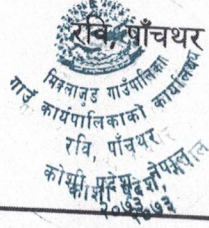 रवि, पाँचथर
मिक्लाजुङ गाउँपालिका
गाउँ कार्यपालिकाको कार्यालय
रवि, पाँचथर
कोशी प्रदेश, नेपाल
२०७३